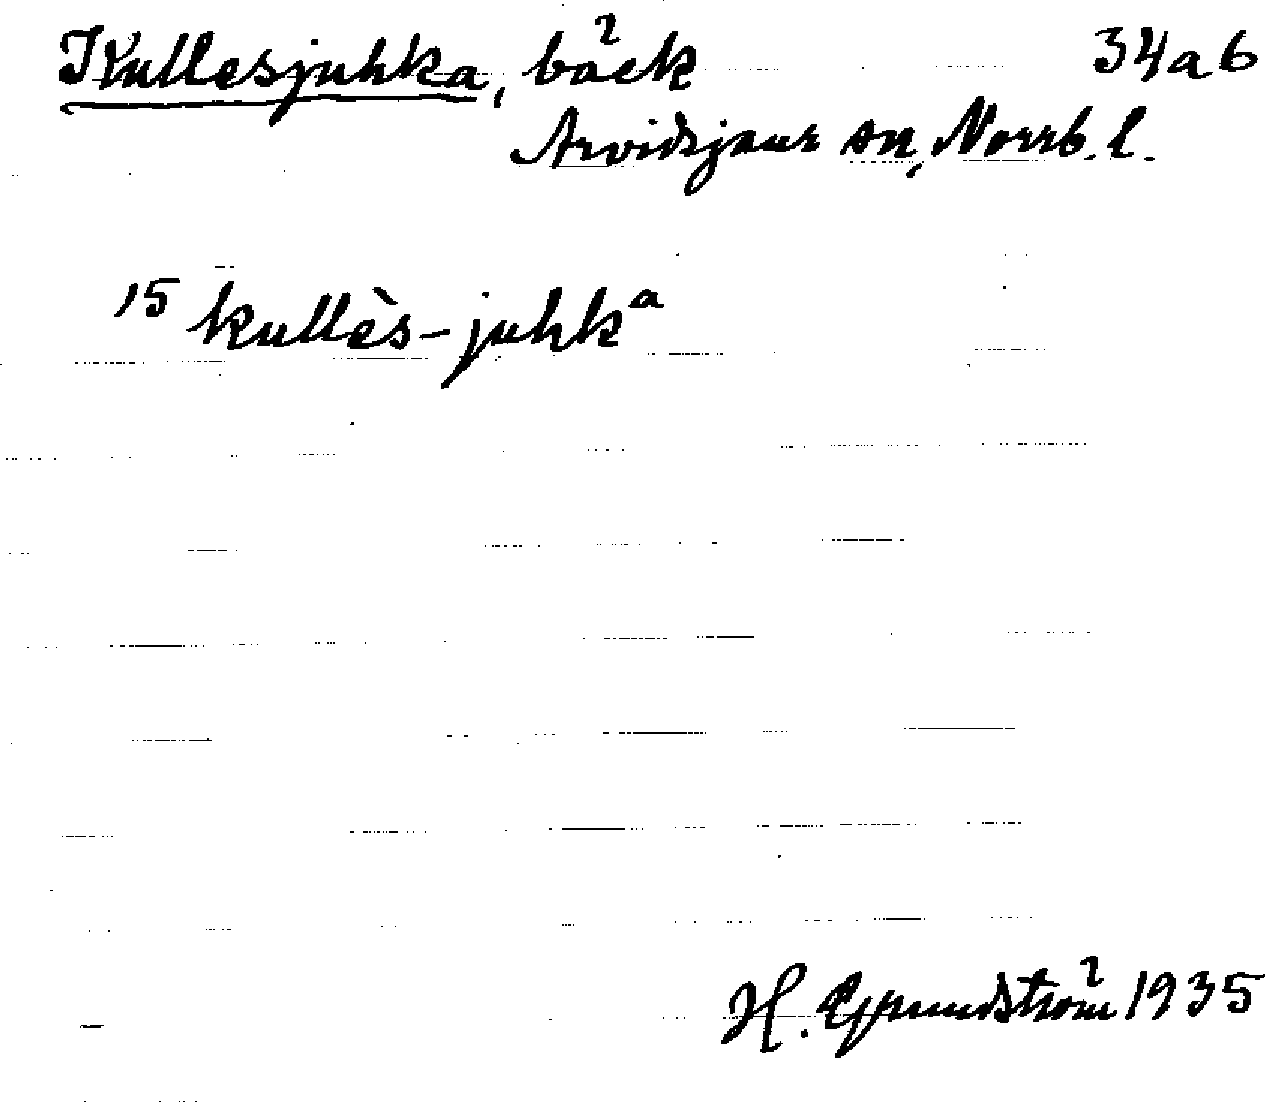 Kullesjuhka, bäck 34a6
Arvidsjaur sn, Norrb. l.
15 kullès-juhkᵃ
H. Grundström 1935